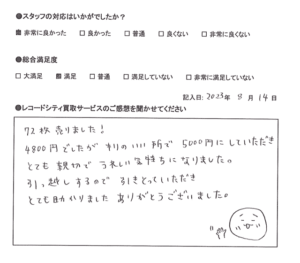 ●スタッフの対応はいかがでしたか?
非常に良かった □良かった □普通 □良くない □非常に良くない
●総合満足度
□大満足 満足 □普通 □満足していない □非常に満足していない
記入日: 2023年 8月 14日
●レコードシティ買取サービスのご感想を聞かせてください
72枚売りました!
4800円でしたが キリのいい所で 5000円にしていただき
とても親切で うれしい気持ちになりました。
引っ越しするので 引きとっていただき
とても助かりました ありがとうございました。